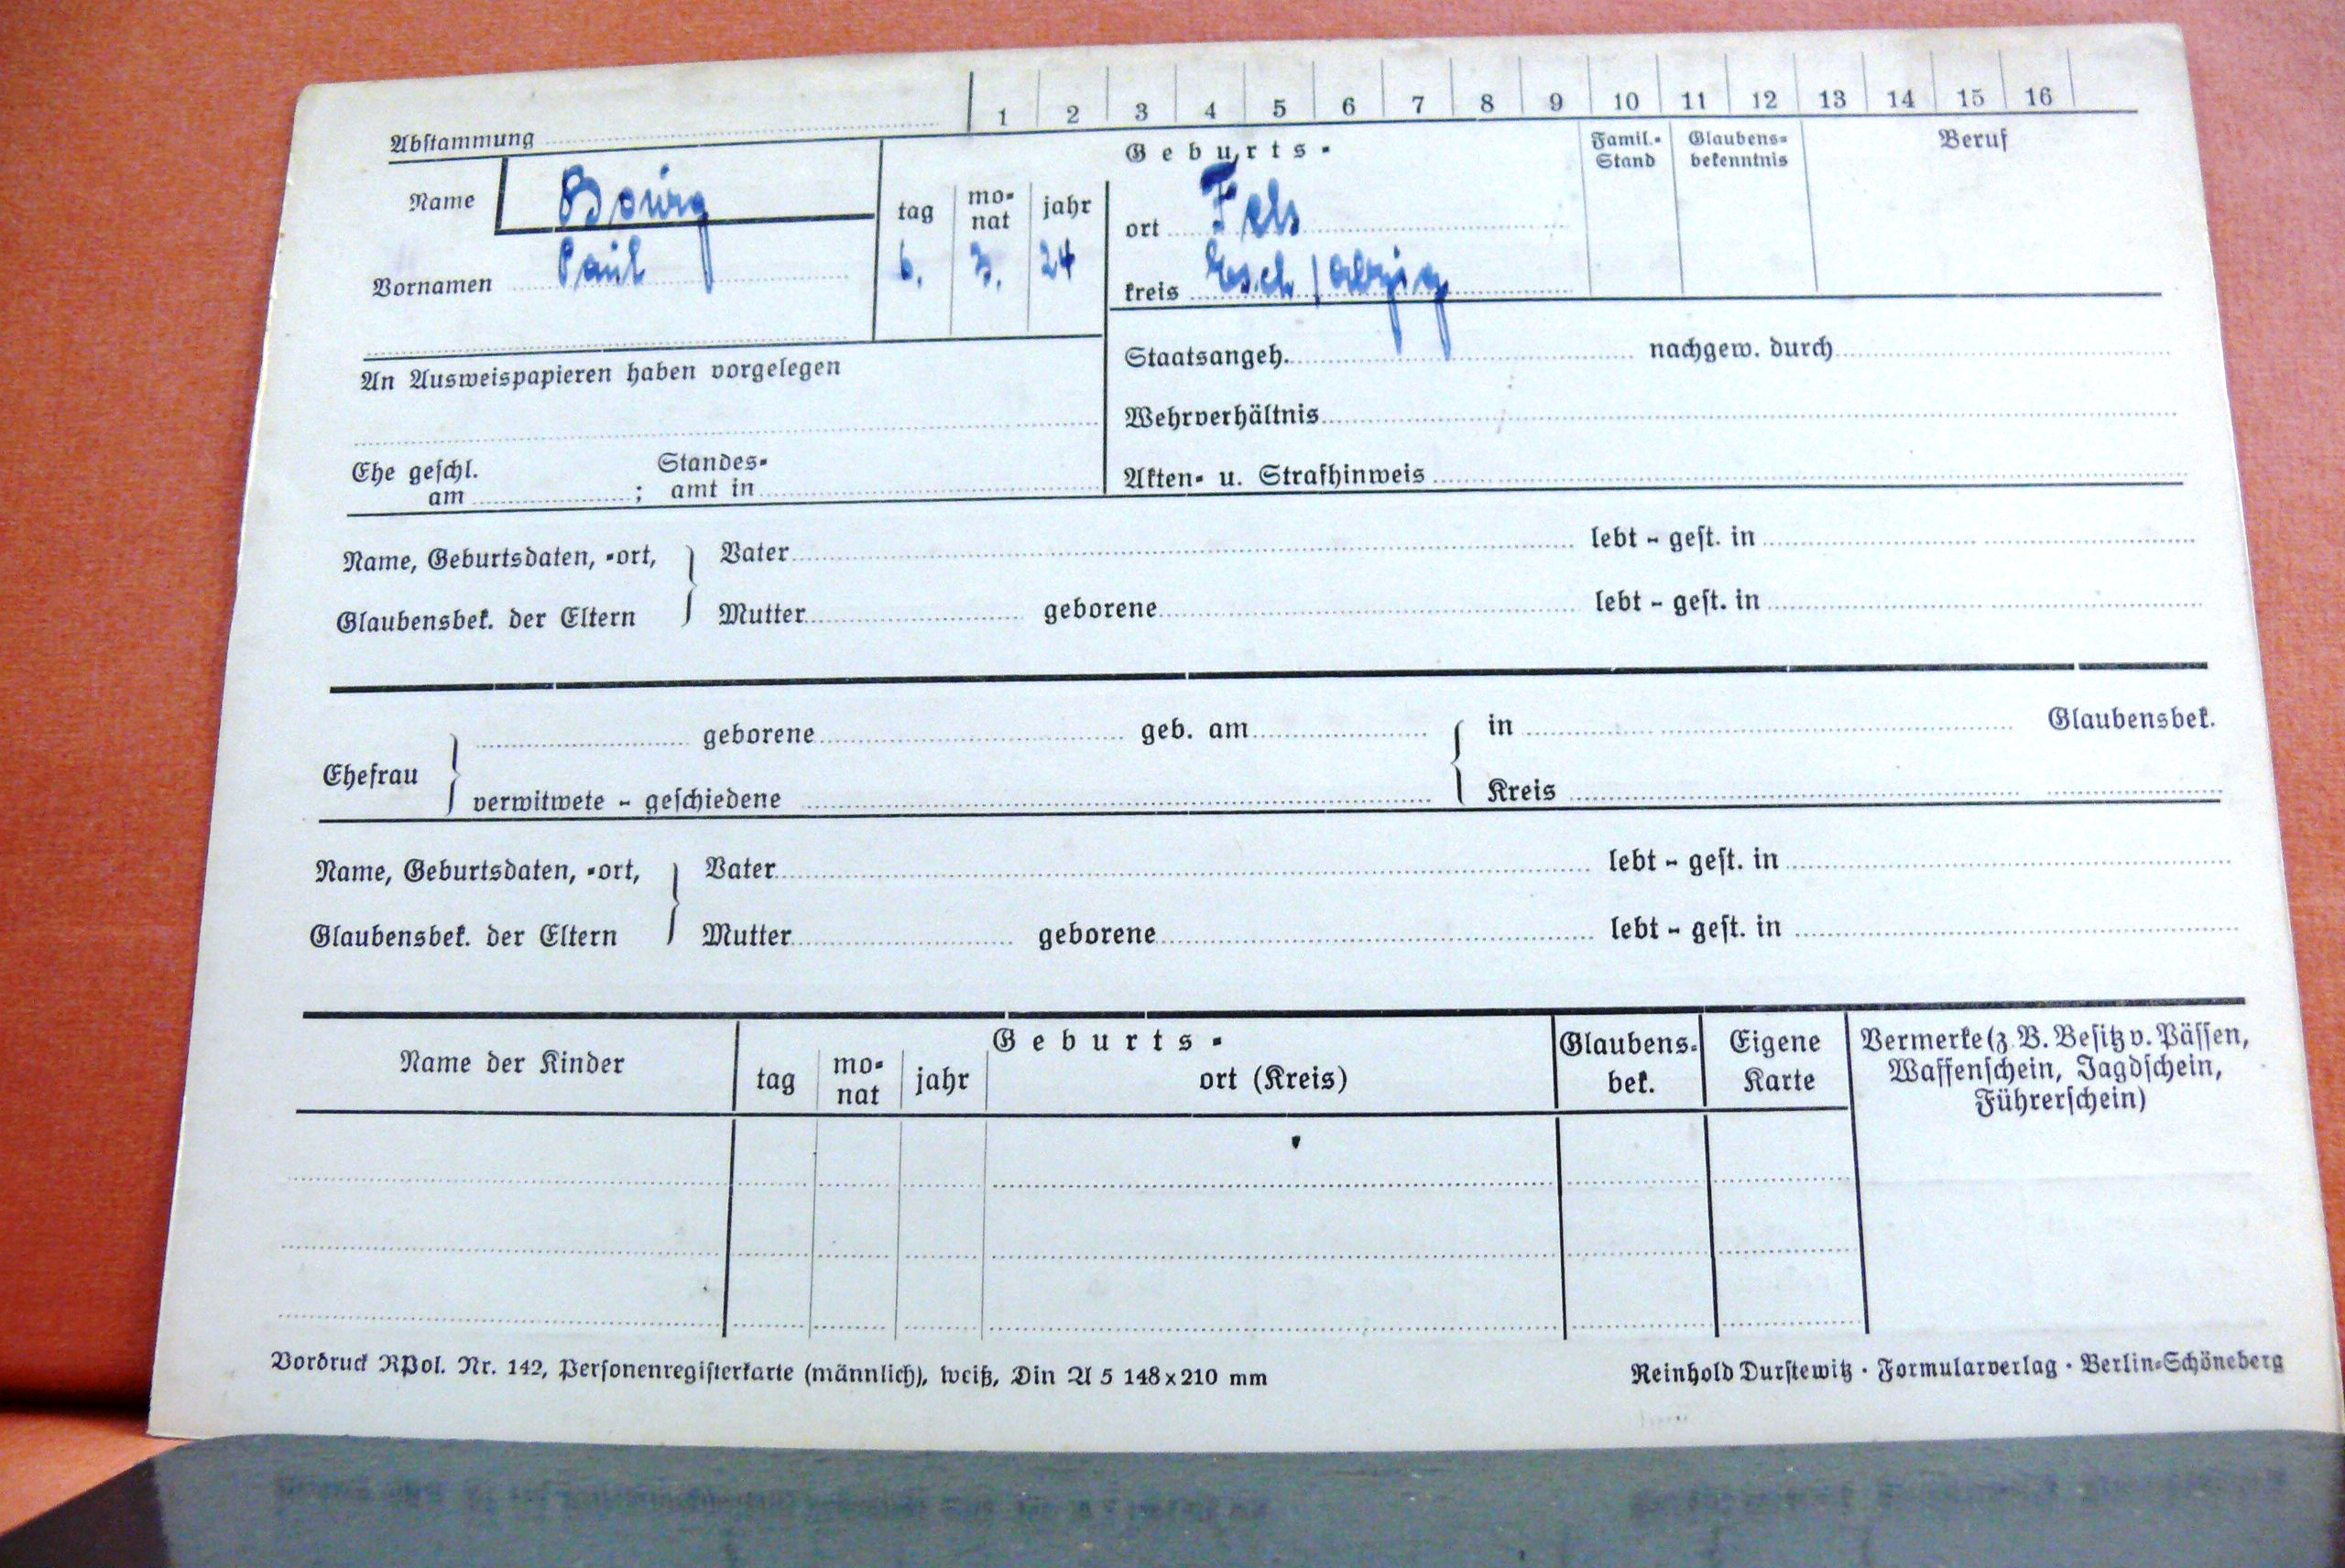 Abstammung 1 2 3 4 5 6 7 8 9 10 11 12 13 14 15 16
Geburts- Famil.-Stand Glaubens-bekenntnis Beruf
Name Bourg tag mo-nat jahr ort Fels
Vornamen Paul 6. 3. 24 kreis Esch/Alzig
An Ausweispapieren haben vorgelegen
Staatsangeh. nachgew. durch
Wehrverhältnis
Ehe geschl. am ; Standes-amt in
Akten- u. Strafhinweis
Name, Geburtsdaten, -ort, Vater lebt - gest. in
Glaubensbek. der Eltern Mutter geborene lebt - gest. in
geborene geb. am in Glaubensbek.
Ehefrau
verwitwete - geschiedene Kreis
Name, Geburtsdaten, -ort, Vater lebt - gest. in
Glaubensbek. der Eltern Mutter geborene lebt - gest. in
Name der Kinder Geburts- Glaubens-bek. Eigene Karte Vermerke (z. B. Besitz v. Pässen,
tag mo-nat jahr ort (Kreis) Waffenschein, Jagdschein,
Führerschein)
Vordruck RPol. Nr. 142, Personenregisterkarte (männlich), weiß, Din A 5 148x210 mm Reinhold Durstewitz · Formularverlag · Berlin-Schöneberg